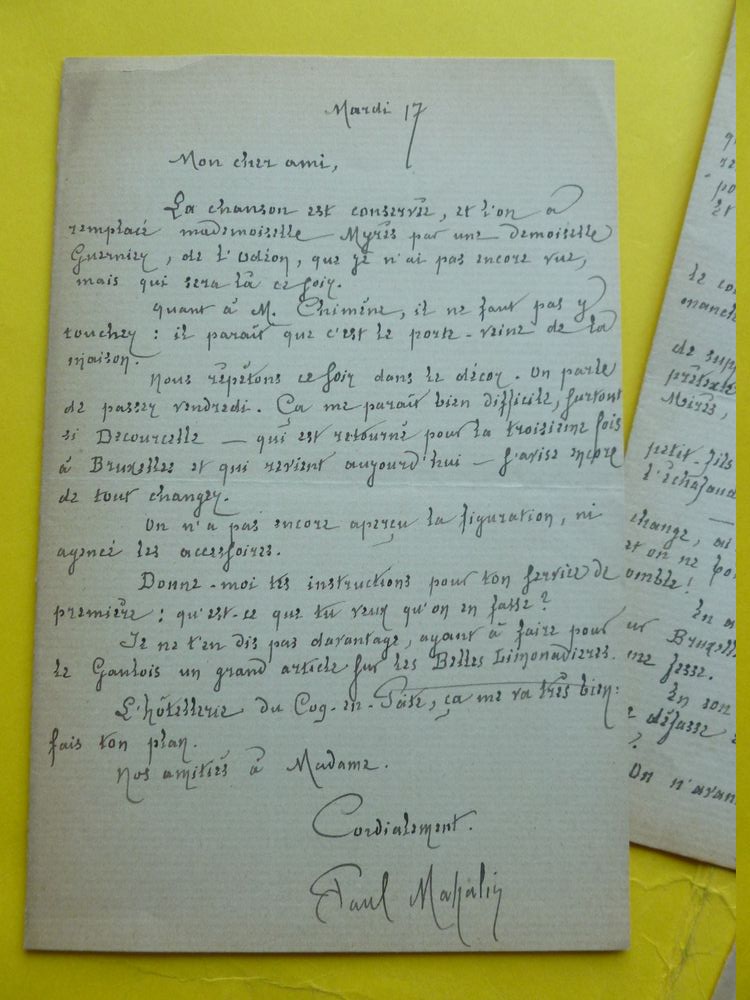 Mardi 17
Mon cher ami,
La chanson est conservée, et l'on a
remplacé mademoiselle Myrès par une demoiselle
Guernier, de l'Odéon, que je n'ai pas encore vue,
mais qui sera là ce soir.
Quant à M. Chimène, il ne faut pas y
toucher : il paraît que c'est le porte-veine de la
maison.
Nous répétons ce soir dans le décor. On parle
de passer vendredi. Ça me paraît bien difficile, surtout
si Decourcelle — qui est retourné pour la troisième fois
à Bruxelles et qui revient aujourd'hui — s'avise encore
de tout changer.
On n'a pas encore aperçu la figuration, ni
agencé les accessoires.
Donne-moi tes instructions pour ton service de
première : qu'est-ce que tu veux qu'on en fasse ?
Je ne t'en dis pas davantage, ayant à faire pour
le Gaulois un grand article sur les Belles Limonadières.
L'hôtellerie du Coq-en-Pâte, ça me va très bien :
fais ton plan.
Nos amitiés à Madame.
Cordialement.
Paul Mahalin
et
le
manch
de supp
prétexte
petit-fils
l'échafaud
change, ai
et on ne
omble !
En
Bruxelle
fesse.
En son
défasse
?
On n'avan